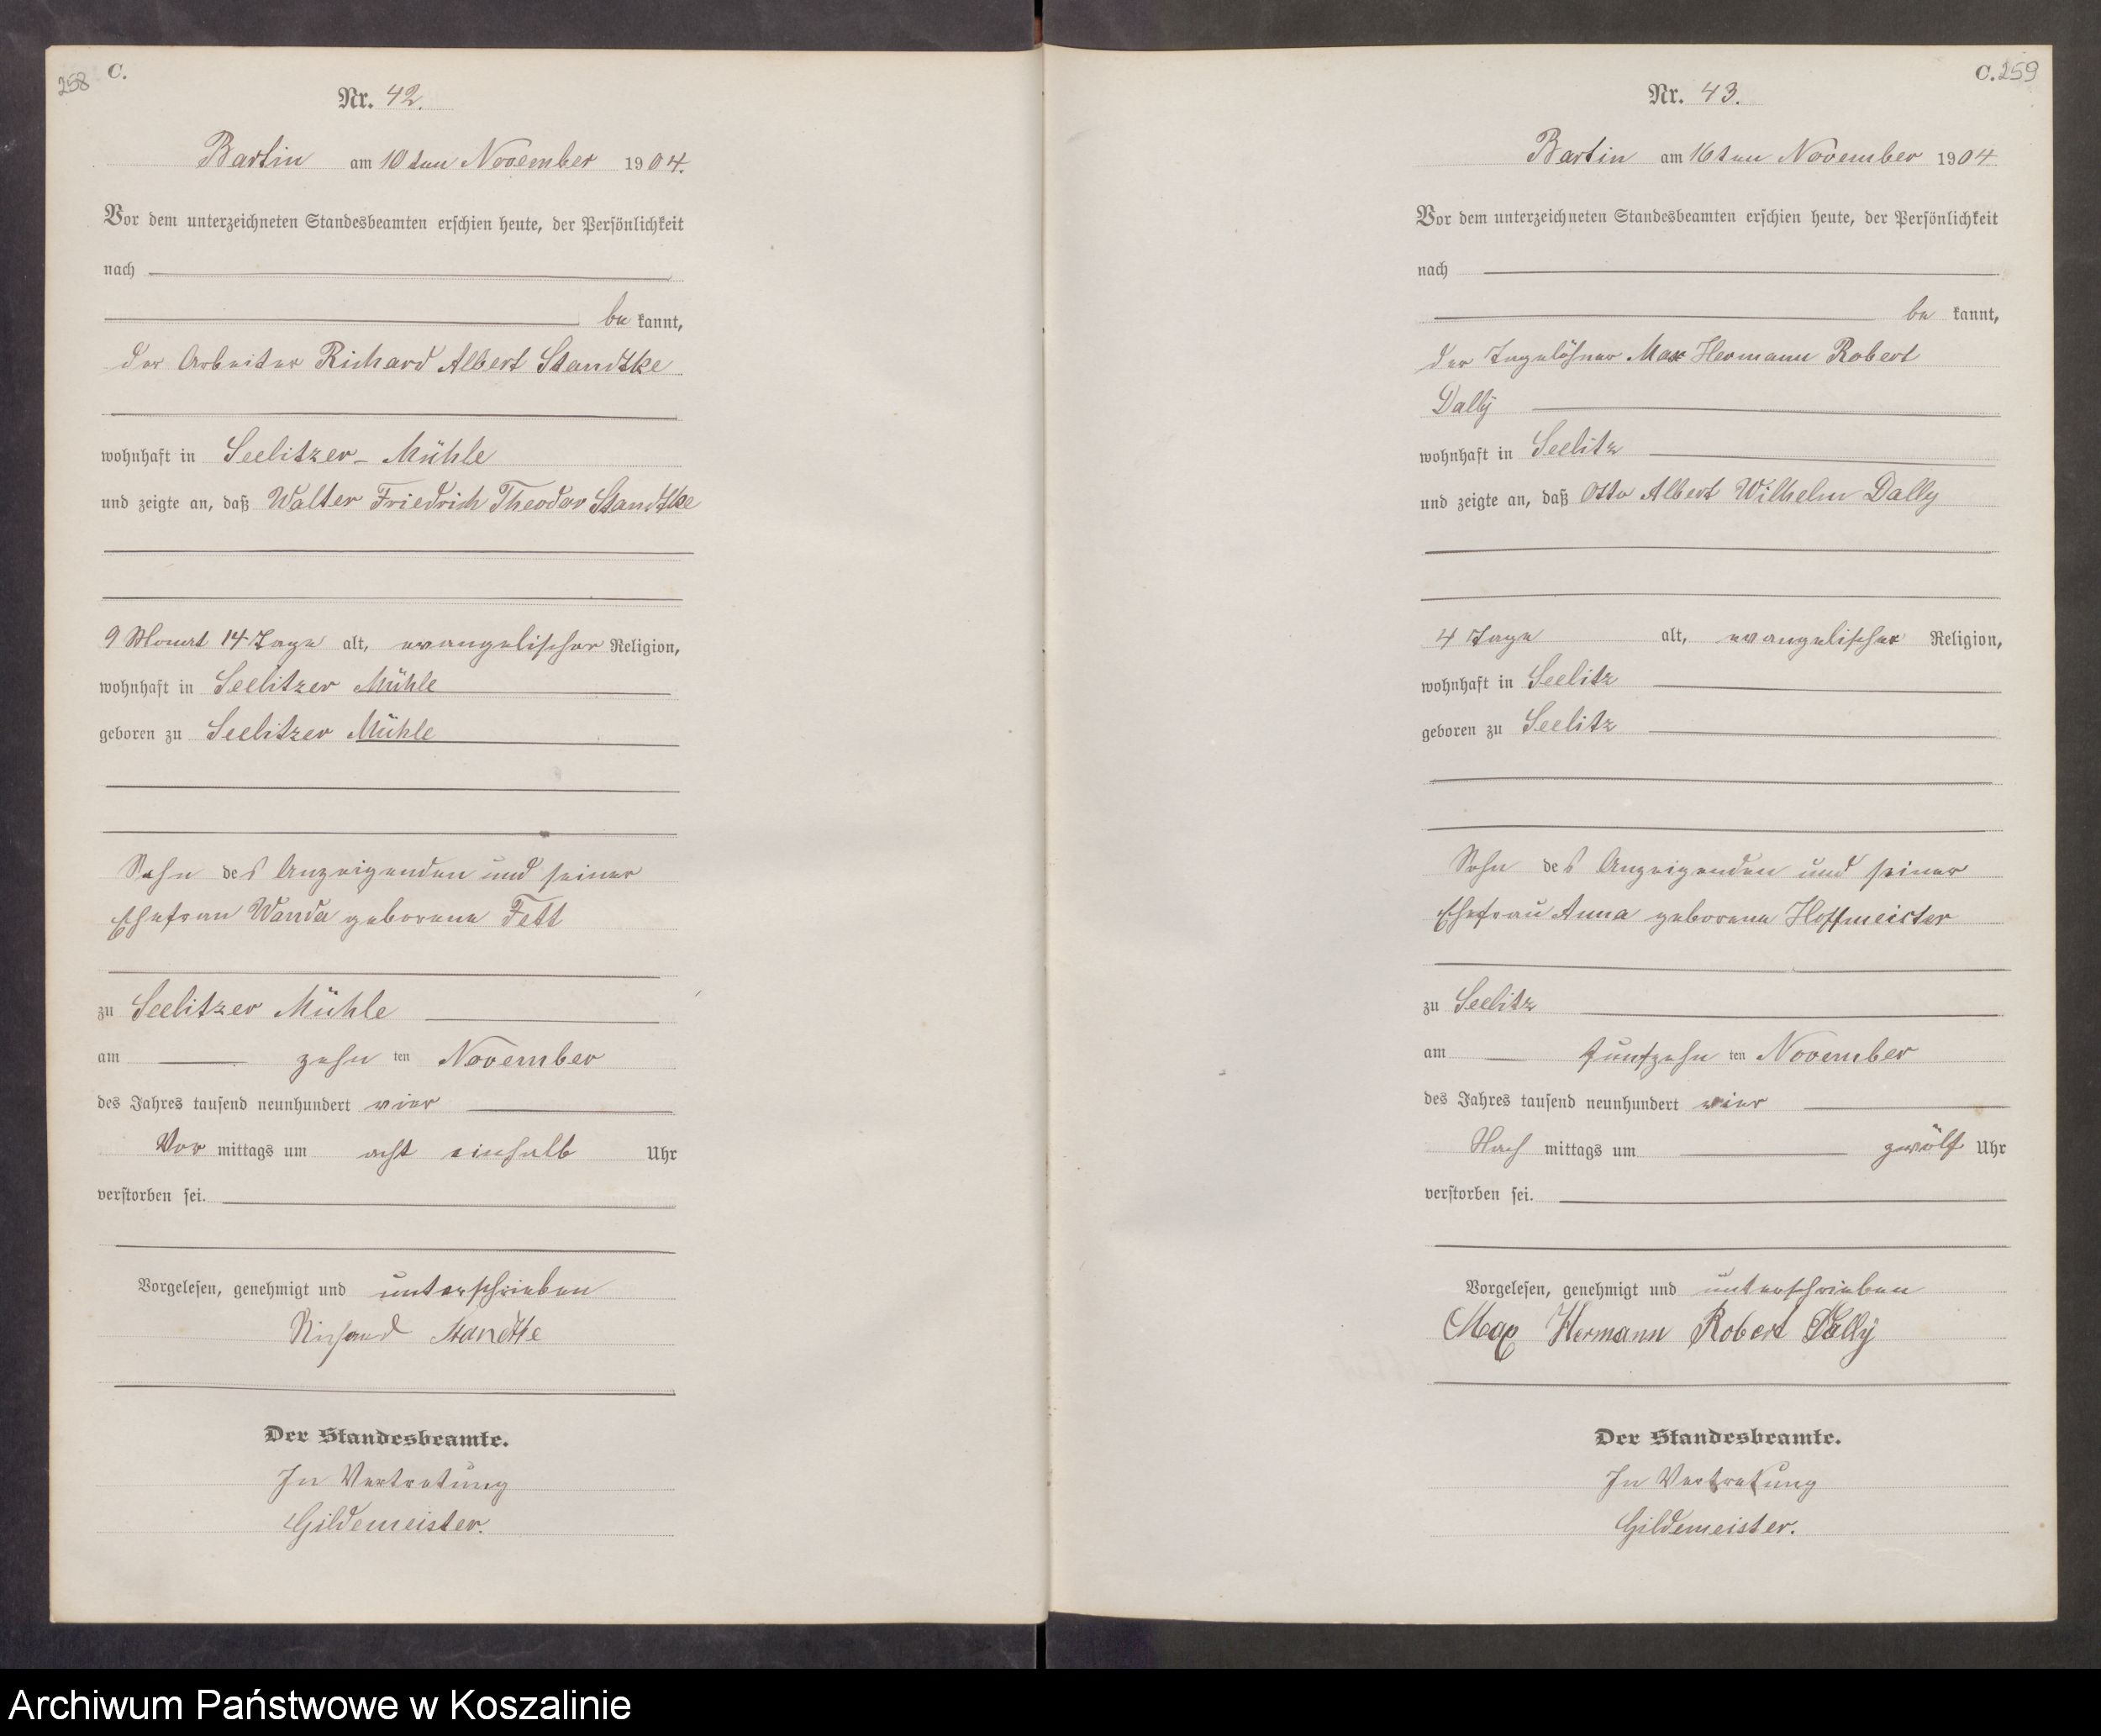 258
C.
Nr. 42.
Bartin am 10ten November 1904.
Vor dem unterzeichneten Standesbeamten erschien heute, der Persönlichkeit
nach
be kannt,
der Arbeiter Richard Albert Standtke
wohnhaft in Seelitzer-Mühle
und zeigte an, daß Walter Friedrich Theodor Standtke
9 Monat 14 Tage alt, evangelischer Religion,
wohnhaft in Seelitzer Mühle
geboren zu Seelitzer Mühle
Sohn des Anzeigenden und seiner
Ehefrau Wanda geborene Fett
zu Seelitzer Mühle
am zehn ten November
des Jahres tausend neunhundert vier
Vor mittags um acht einhalb Uhr
verstorben sei.
Vorgelesen, genehmigt und unterschrieben
Richard Standtke
Der Standesbeamte.
In Vertretung
Gildemeister.
C. 259
Nr. 43.
Bartin am 16ten November 1904
Vor dem unterzeichneten Standesbeamten erschien heute, der Persönlichkeit
nach
be kannt,
der Tagelöhner Max Hermann Robert
Dallÿ
wohnhaft in Seelitz
und zeigte an, daß Otto Albert Wilhelm Dally
4 Tage alt, evangelischer Religion,
wohnhaft in Seelitz
geboren zu Seelitz
Sohn des Anzeigenden und seiner
Ehefrau Anna geborene Hoffmeister
zu Seelitz
am fünfzehn ten November
des Jahres tausend neunhundert vier
Nach mittags um zwölf Uhr
verstorben sei.
Vorgelesen, genehmigt und unterschrieben
Max Hermann Robert Dallÿ
Der Standesbeamte.
In Vertretung
Gildemeister.
Archiwum Państwowe w Koszalinie